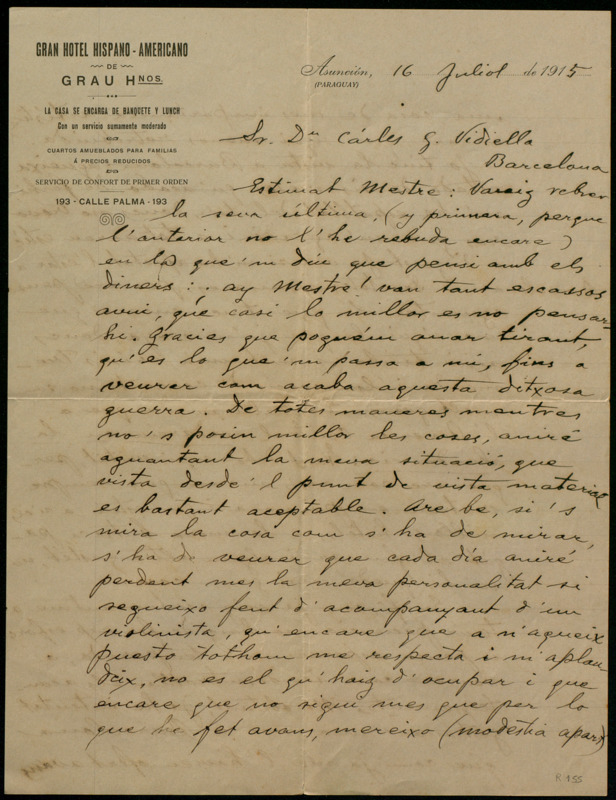 GRAN HOTEL HISPANO-AMERICANO
DE
GRAU HNOS.
LA CASA SE ENCARGA DE BANQUETE Y LUNCH
Con un servicio sumamente moderado
CUARTOS AMUEBLADOS PARA FAMILIAS
Á PRECIOS REDUCIDOS
SERVICIO DE CONFORT DE PRIMER ORDEN
193 - CALLE PALMA - 193
Asunción, 16 Juliol de 1915
(PARAGUAY)
Sr. Dn Cárles G. Vidiella
Barcelona
Estimat Mestre: Vareig rebrer
la seva última, (y primera, perque
l'anterior no l'he rebuda encare)
en la que'm diu que pensi amb els
diners: ay Mestre! van tant escassos
avui, que casi lo millor es no pensar-
hi. Gracies que poguém anar tirant,
qu'es lo que'm passa a mí, fins a
veurer com acaba aquesta ditxosa
guerra. De totes maneres mentres
no's posin millor les coses, aniré
aguantant la meva situació, que
vista desde'l punt de vista material
es bastant aceptable. Are be, si's
mira la cosa com s'ha de mirar,
s'ha de veurer que cada día aniré
perdent mes la meva personalitat si
segueixo fent d'acompanyant d'un
violinista, qu'encare que a n'aqueix
puesto tothom me respecta i m'aplau
deix, no es el qu'haig d'ocupar i que
encare que no sigui mes que per lo
que he fet avans, mereixo (modestia apart)
R 155